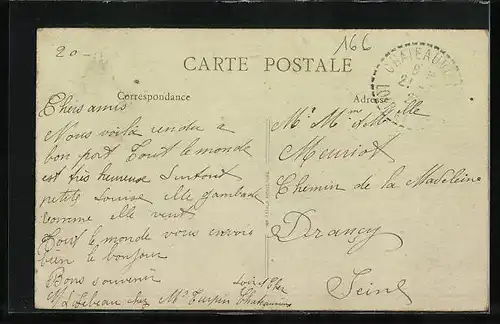 20-
166
CARTE POSTALE
Correspondance
Adresse
CHATEAUNEUF
Chers amis
Nous voila rendu a
bon port Tout le monde
est très heureuse Surtout
petite Louise elle gambade
comme elle veut
Tout le monde vous envois
bien le bonjour
Bons souvenir
Lebeau chez Mr Turpin
Loir et Cher
Mr Mme et Mlle
Meuriot
Chemin de la Madeleine
Drancy
Seine